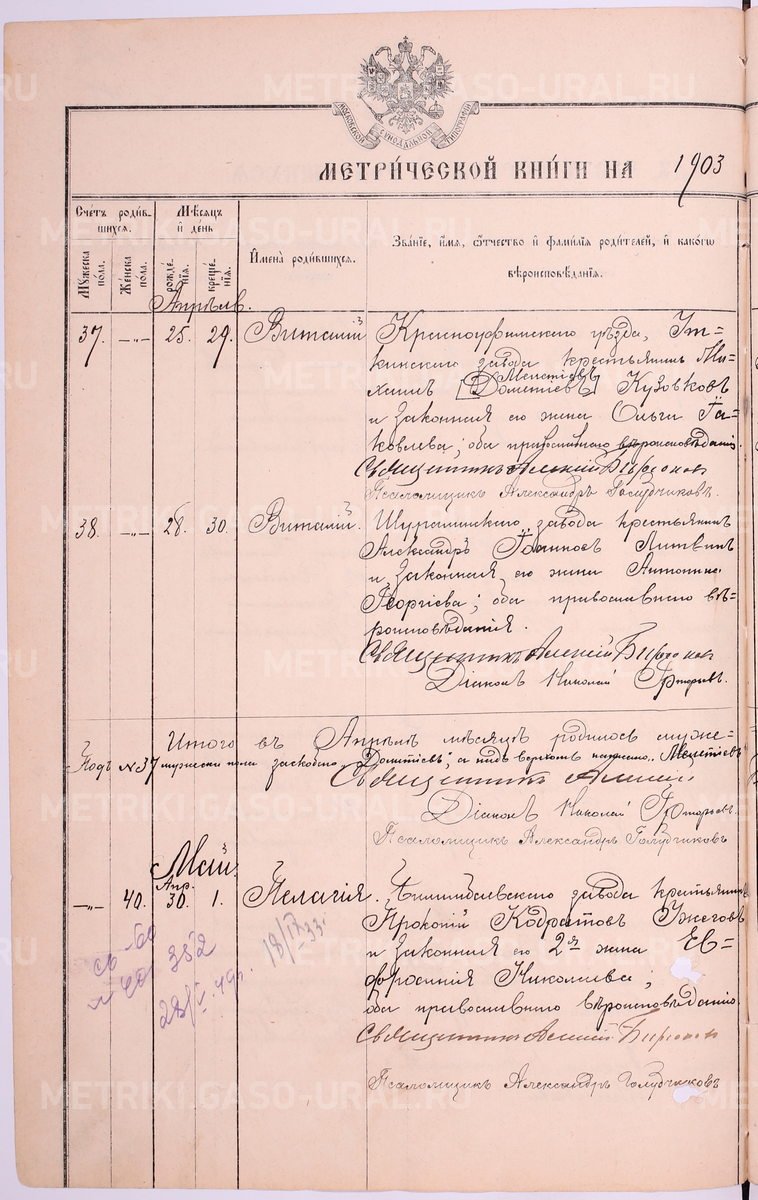 МОСКОВСКОЙ СѴНОДАЛЬНОЙ ТИПОГРАФІИ
МЕТРИ́ЧЕСКОЙ КНИ́ГИ НА 1903
Сче́тъ роди́в-
шихся.
Мѣ́сяцъ
и҆ де́нь
Мꙋ́жеска по́ла.
Же́нска по́ла.
рожде́-нїѧ.
креще́-нїѧ.
И҆мена̀ роди́вшихся.
Зва́нїе, и҆́мѧ, ѻ҆́тчество и҆ фамилїѧ роди́телей, и҆ како́гѡ
вѣроисповѣ́данїѧ.
Апрѣль.
37. —„— 25. 29. Виталій Красноуфимскаго уѣзда, Ут-
кинскаго завода крестьянинъ Ми-
Мелетіевъ
хаилъ [Дометіевъ] Кузовковъ
и законная его жена Ольга Іа-
ковлева; оба православнаго вѣроисповѣданія.
Священникъ Алексій Бирюков
Псаломщикъ Александръ Голубчиковъ.
38. —„— 28. 30. Виталій. Шуралинскаго завода крестьянинъ
Александръ Іоанновъ Литвинъ
и законная его жена Антонина
Георгіева; оба православнаго вѣ-
роисповѣданія.
Священникъ Алексій Бирюков
Діаконъ Николай
Итого въ Апрѣлѣ мѣсяцѣ родилось муже-
Подъ №37 мужеска пола заскоблено „Дометіевъ", а надъ верхомъ написано „Мелетіевъ
Священникъ Алексій
Діаконъ Николай
Псаломщикъ Александръ Голубчиковъ
Май
Апр.
—„— 40. 30. 1. Пелагія. Билимбаевскаго завода крестьянинъ
Прокопій Кодратовъ Ужеговъ
и законная его 2я жена Ев-
фросинія Николаева;
оба православнаго вѣроисповѣданія.
Священникъ Алексій Бирюков
Псаломщикъ Александръ Голубчиковъ
св-во 382
28/V-49г.
18/IX 33.
METRIKI.GASO-URAL.RU